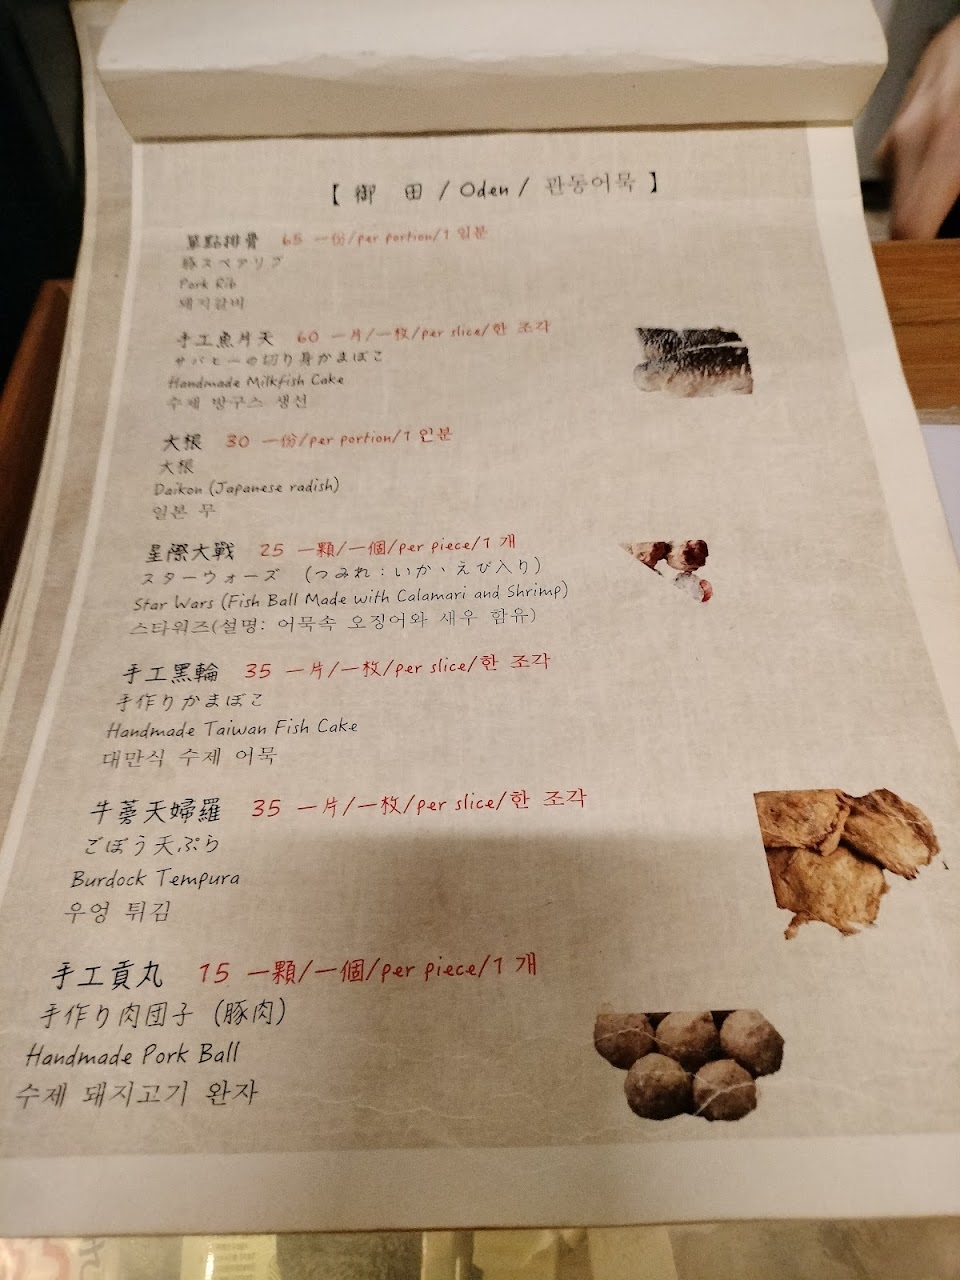 【 御 田 / Oden / 관동어묵 】
單點排骨 65 一份/per portion/1 인분
豚スペアリブ
Pork Rib
돼지갈비
手工魚片天 60 一片/一枚/per slice/한 조각
サバヒーの切り身かまぼこ
Handmade Milkfish Cake
수제 방구스 생선
大根 30 一份/per portion/1 인분
大根
Daikon (Japanese radish)
일본 무
星際大戰 25 一顆/一個/per piece/1 개
スターウォーズ (つみれ：いか、えび入り)
Star Wars (Fish Ball Made with Calamari and Shrimp)
스타워즈(설명: 어묵속 오징어와 새우 함유)
手工黑輪 35 一片/一枚/per slice/한 조각
手作りかまぼこ
Handmade Taiwan Fish Cake
대만식 수제 어묵
牛蒡天婦羅 35 一片/一枚/per slice/한 조각
ごぼう天ぷら
Burdock Tempura
우엉 튀김
手工貢丸 15 一顆/一個/per piece/1 개
手作り肉団子 (豚肉)
Handmade Pork Ball
수제 돼지고기 완자